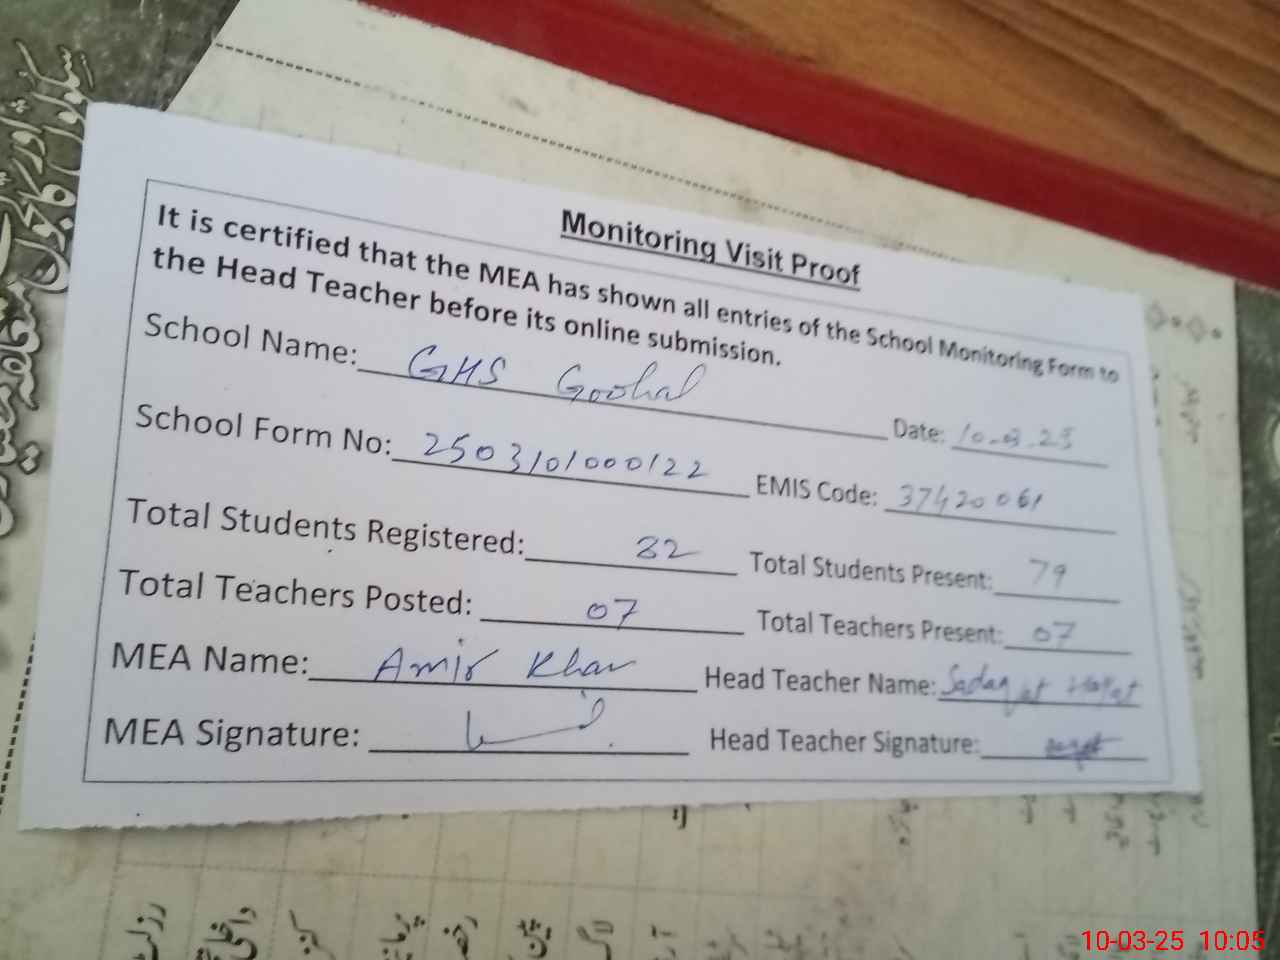 Monitoring Visit Proof
It is certified that the MEA has shown all entries of the School Monitoring Form to
the Head Teacher before its online submission.
School Name: GHS Goohal Date: 10-03-25
School Form No: 2503101000122 EMIS Code: 37420061
Total Students Registered: 82 Total Students Present: 79
Total Teachers Posted: 07 Total Teachers Present: 07
MEA Name: Amir Khan Head Teacher Name: Sadaqat Hayat
MEA Signature: Head Teacher Signature:
10-03-25 10:05